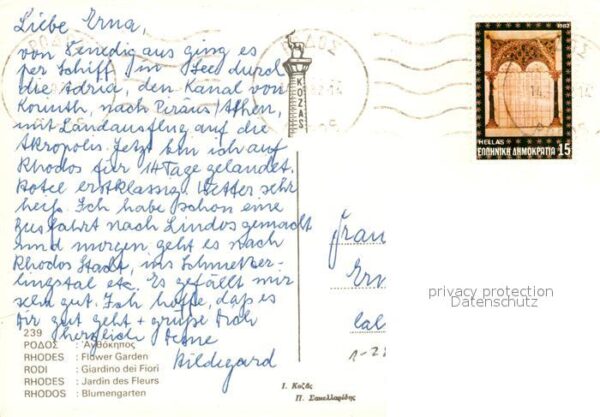 Liebe Erna,
von Venedig aus ging es
per Schiff in See durch
die Adria, den Kanal von
Korinth, nach Piräus/Athen,
mit Landausflug auf die
Akropolis. Jetzt bin ich auf
Rhodos für 14 Tage gelandet.
Hotel erstklassig. Wetter sehr
heiß. Ich habe schon eine
Ausfahrt nach Lindos gemacht
und morgen geht es nach
Rhodos Stadt, ins Schmetter-
lingstal etc. Es gefällt mir
sehr gut. Ich hoffe, daß es
Dir gut geht + grüße Dich
herzlich Deine
Hildegard
239
ΡΟΔΟΣ : Ανθόκηπος
RHODES : Flower Garden
RODI : Giardino dei Fiori
RHODES : Jardin des Fleurs
RHODOS : Blumengarten
ΡΟΔΟΣ
ΡΟΔΟΣ
KOZAS
1982
HELLAS
ΕΛΛΗΝΙΚΗ ΔΗΜΟΚΡΑΤΙΑ 15
Frau
privacy protection
Datenschutz
Ι. Κοζάς
Π. Σακελλαρίδης